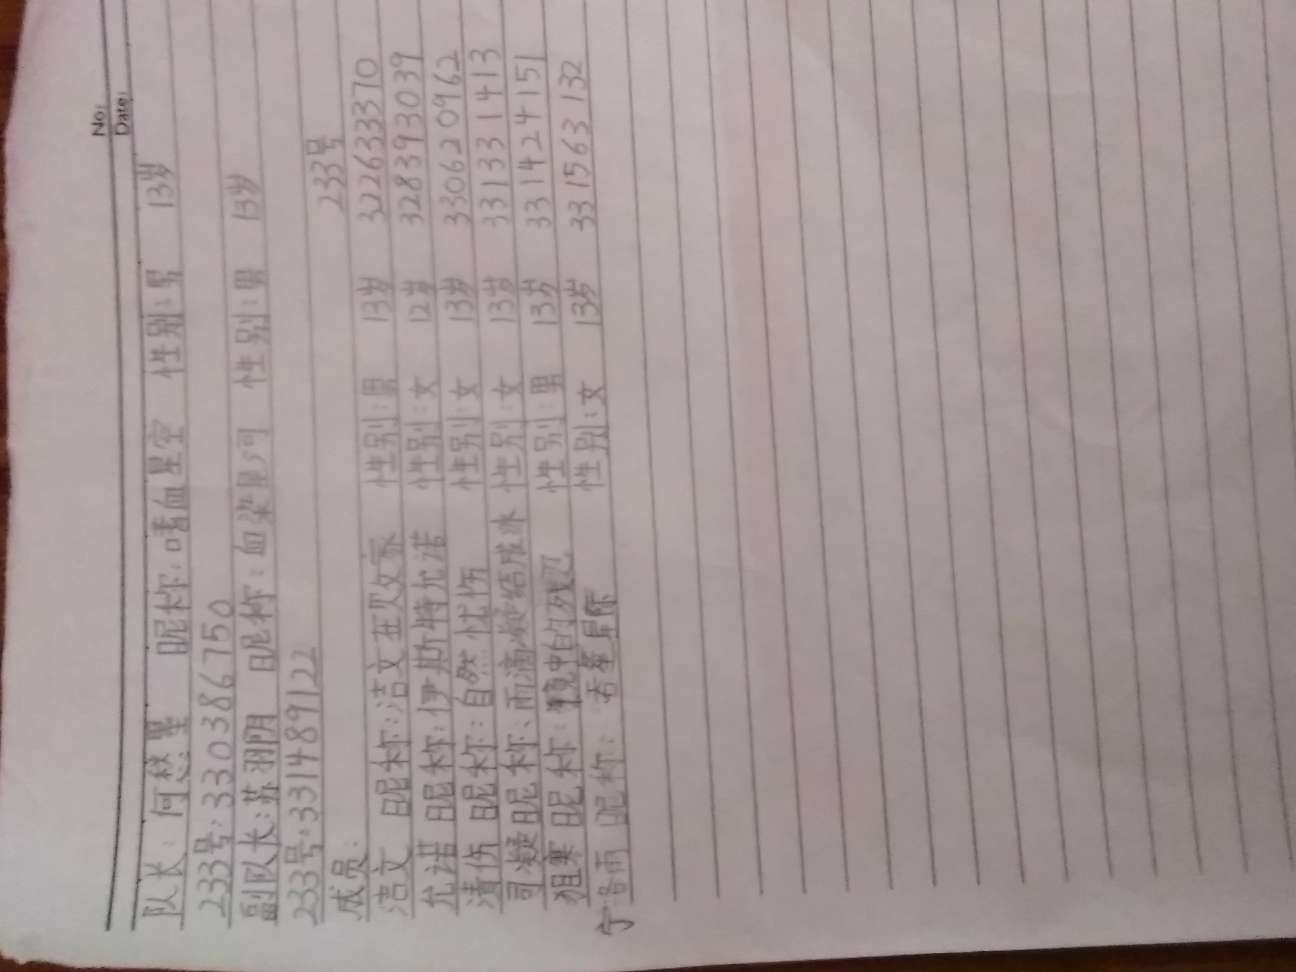 No:
Date:
队长:何愁墨 昵称:嗜血星空 性别:男 13岁
233号:330386750
副队长:苏羽阴 昵称:血染星河 性别:男 13岁
233号:331489122
成员: 233号
洁文 昵称:洁文在次文家 性别:男 13岁 322633370
允诺 昵称:伊斯特允诺 性别:女 12岁 328393039
清伤 昵称:自然忧伤 性别:女 13岁 330620962
司凝 昵称:雨滴凝结成冰 性别:女 13岁 331331413
狙寒 昵称:镜中的残 性别:男 13岁 331424151
宁洛雨 昵称:若 星际 性别:女 13岁 331563132